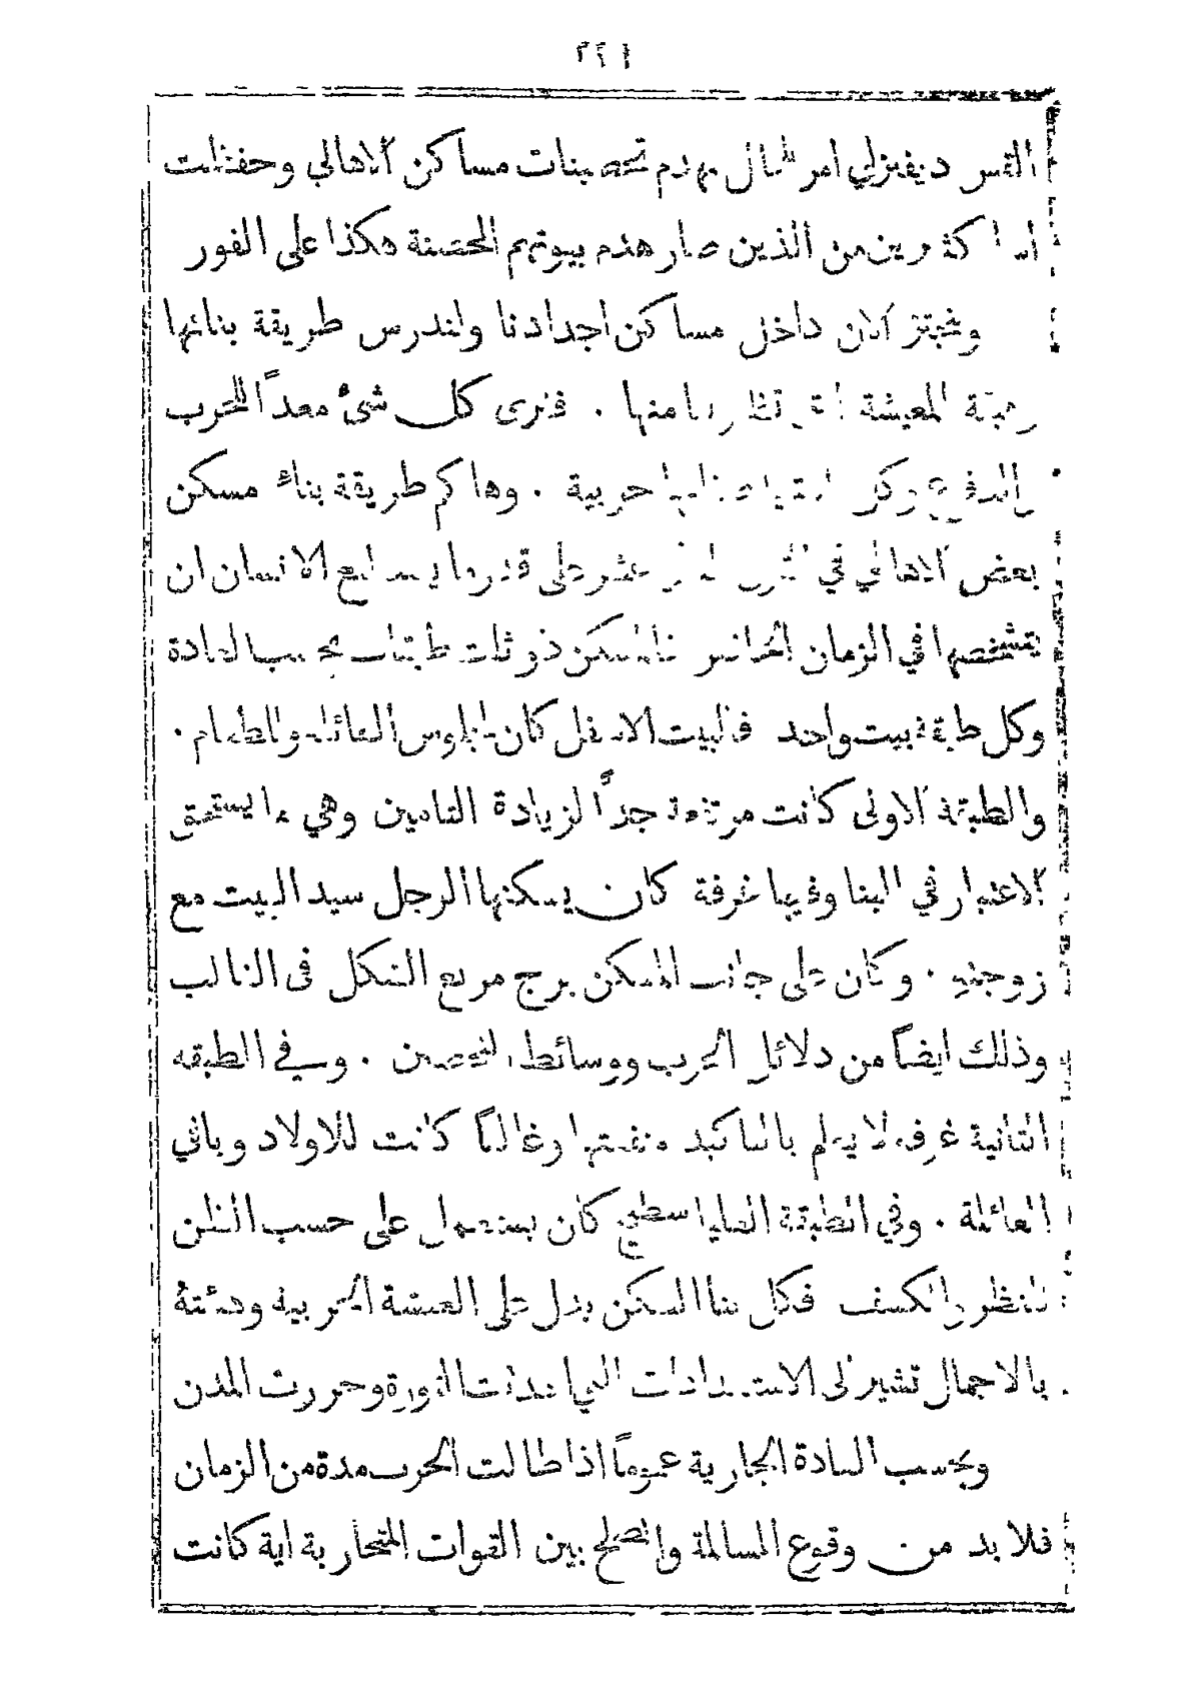 ٢٢١
القس ديفيزلي امر للحال بهدم تحصينات مساكن الاهالي وحفظت
كثيرين من الذين صار هدم بيوتهم المحصنة هكذا على الفور
ولنجتز الان داخل مساكن اجدادنا ولندرس طريقة بنائها
وهيئة المعيشة منها . فنرى كل شئ معداً للحرب
والدفاع وكل حربية . وهاكم طريقة بناء مسكن
بعض الاهالي في القرن عشر على قدر ما يستطيع الانسان ان
يتشخصها في الزمان الحاضر فالمسكن ذو ثلث طبقات بحسب العادة
وكل طبقة بيت واحد فالبيت الاسفل كان لجلوس العائلة والطعام .
والطبقة الاولى كانت مرتفعة جداً لزيادة التامين وهي ما يستحق
الاعتبار في البنا وفيها غرفة كان يسكنها الرجل سيد البيت مع
زوجته . وكان على جانب المسكن برج مربع الشكل فى الغالب
وذلك ايضاً من دلائل الحرب ووسائط التحصين . وفي الطبقه
الثانية غرف لا يعلم بالتاكيد منفعتها وغالباً كانت للاولاد وباقي
العائلة . وفي الطبقة العليا سطح كان يستعمل على حسب الظن
للنظر والكشف فكل بنا المسكن يدل على العيشة الحربية وهيئتة
بالاجمال تشير الى الاستعدادات التي الثورة وحررت المدن
وبحسب العادة الجارية عموماً اذا طالت الحرب مدة من الزمان
فلا بد من وقوع المسالمة والصلح بين القوات المتحاربة اية كانت